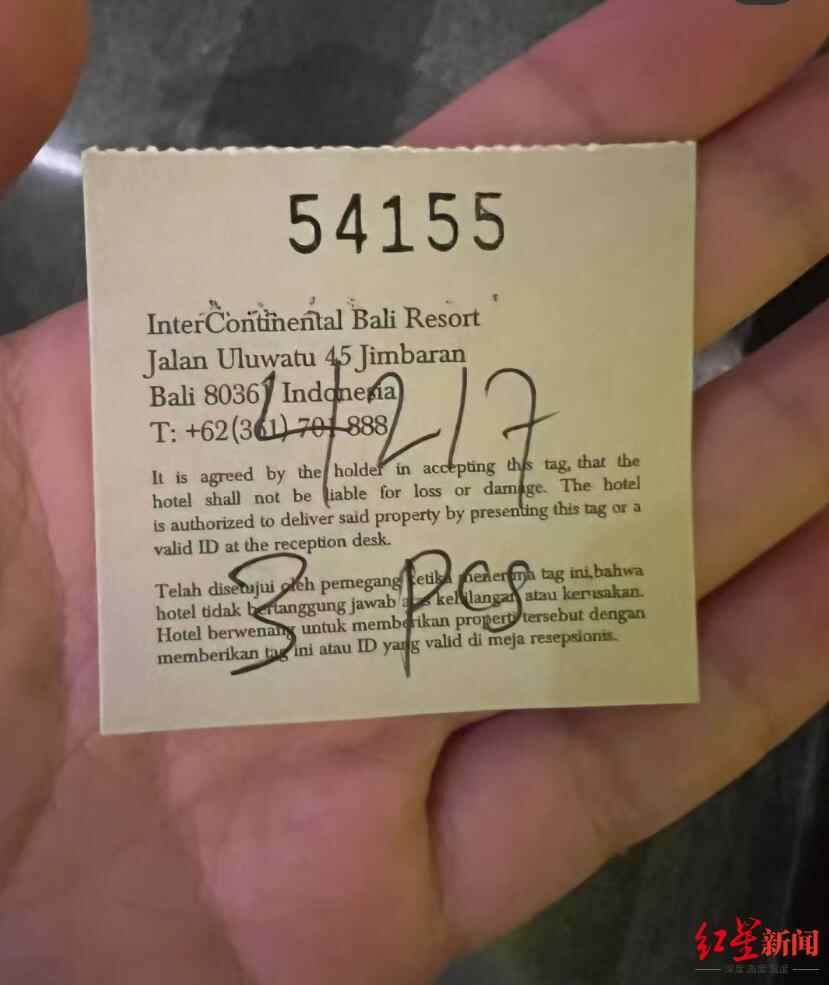 54155
InterContinental Bali Resort
Jalan Uluwatu 45 Jimbaran
Bali 80361 Indonesia
T: +62(361) 701 888
4217
It is agreed by the holder in accepting this tag, that the
hotel shall not be liable for loss or damage. The hotel
is authorized to deliver said property by presenting this tag or a
valid ID at the reception desk.
3 pcs
Telah disetujui oleh pemegang ketika menerima tag ini,bahwa
hotel tidak bertanggung jawab atas kehilangan atau kerusakan.
Hotel berwenang untuk memberikan properti tersebut dengan
memberikan tag ini atau ID yang valid di meja resepsionis.
红星新闻